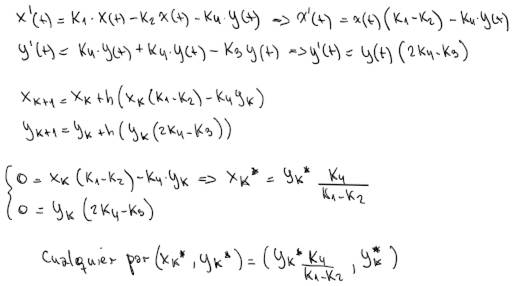 x'(t) = K1·x(t) - K2 x(t) - K4·y(t) => x'(t) = x(t)(K1-K2) - K4·y(t)
y'(t) = K4·y(t) + K4·y(t) - K3 y(t) => y'(t) = y(t) (2K4-K3)
xK+1 = xK + h(xK(K1-K2) - K4 yK)
yK+1 = yK + h(yK(2K4-K3))
0 = xK (K1-K2) - K4·yK => xK* = yK* K4/(K1-K2)
0 = yK (2K4-K3)
Cualquier par (xK*, yK*) = (yK* K4/(K1-K2), yK*)